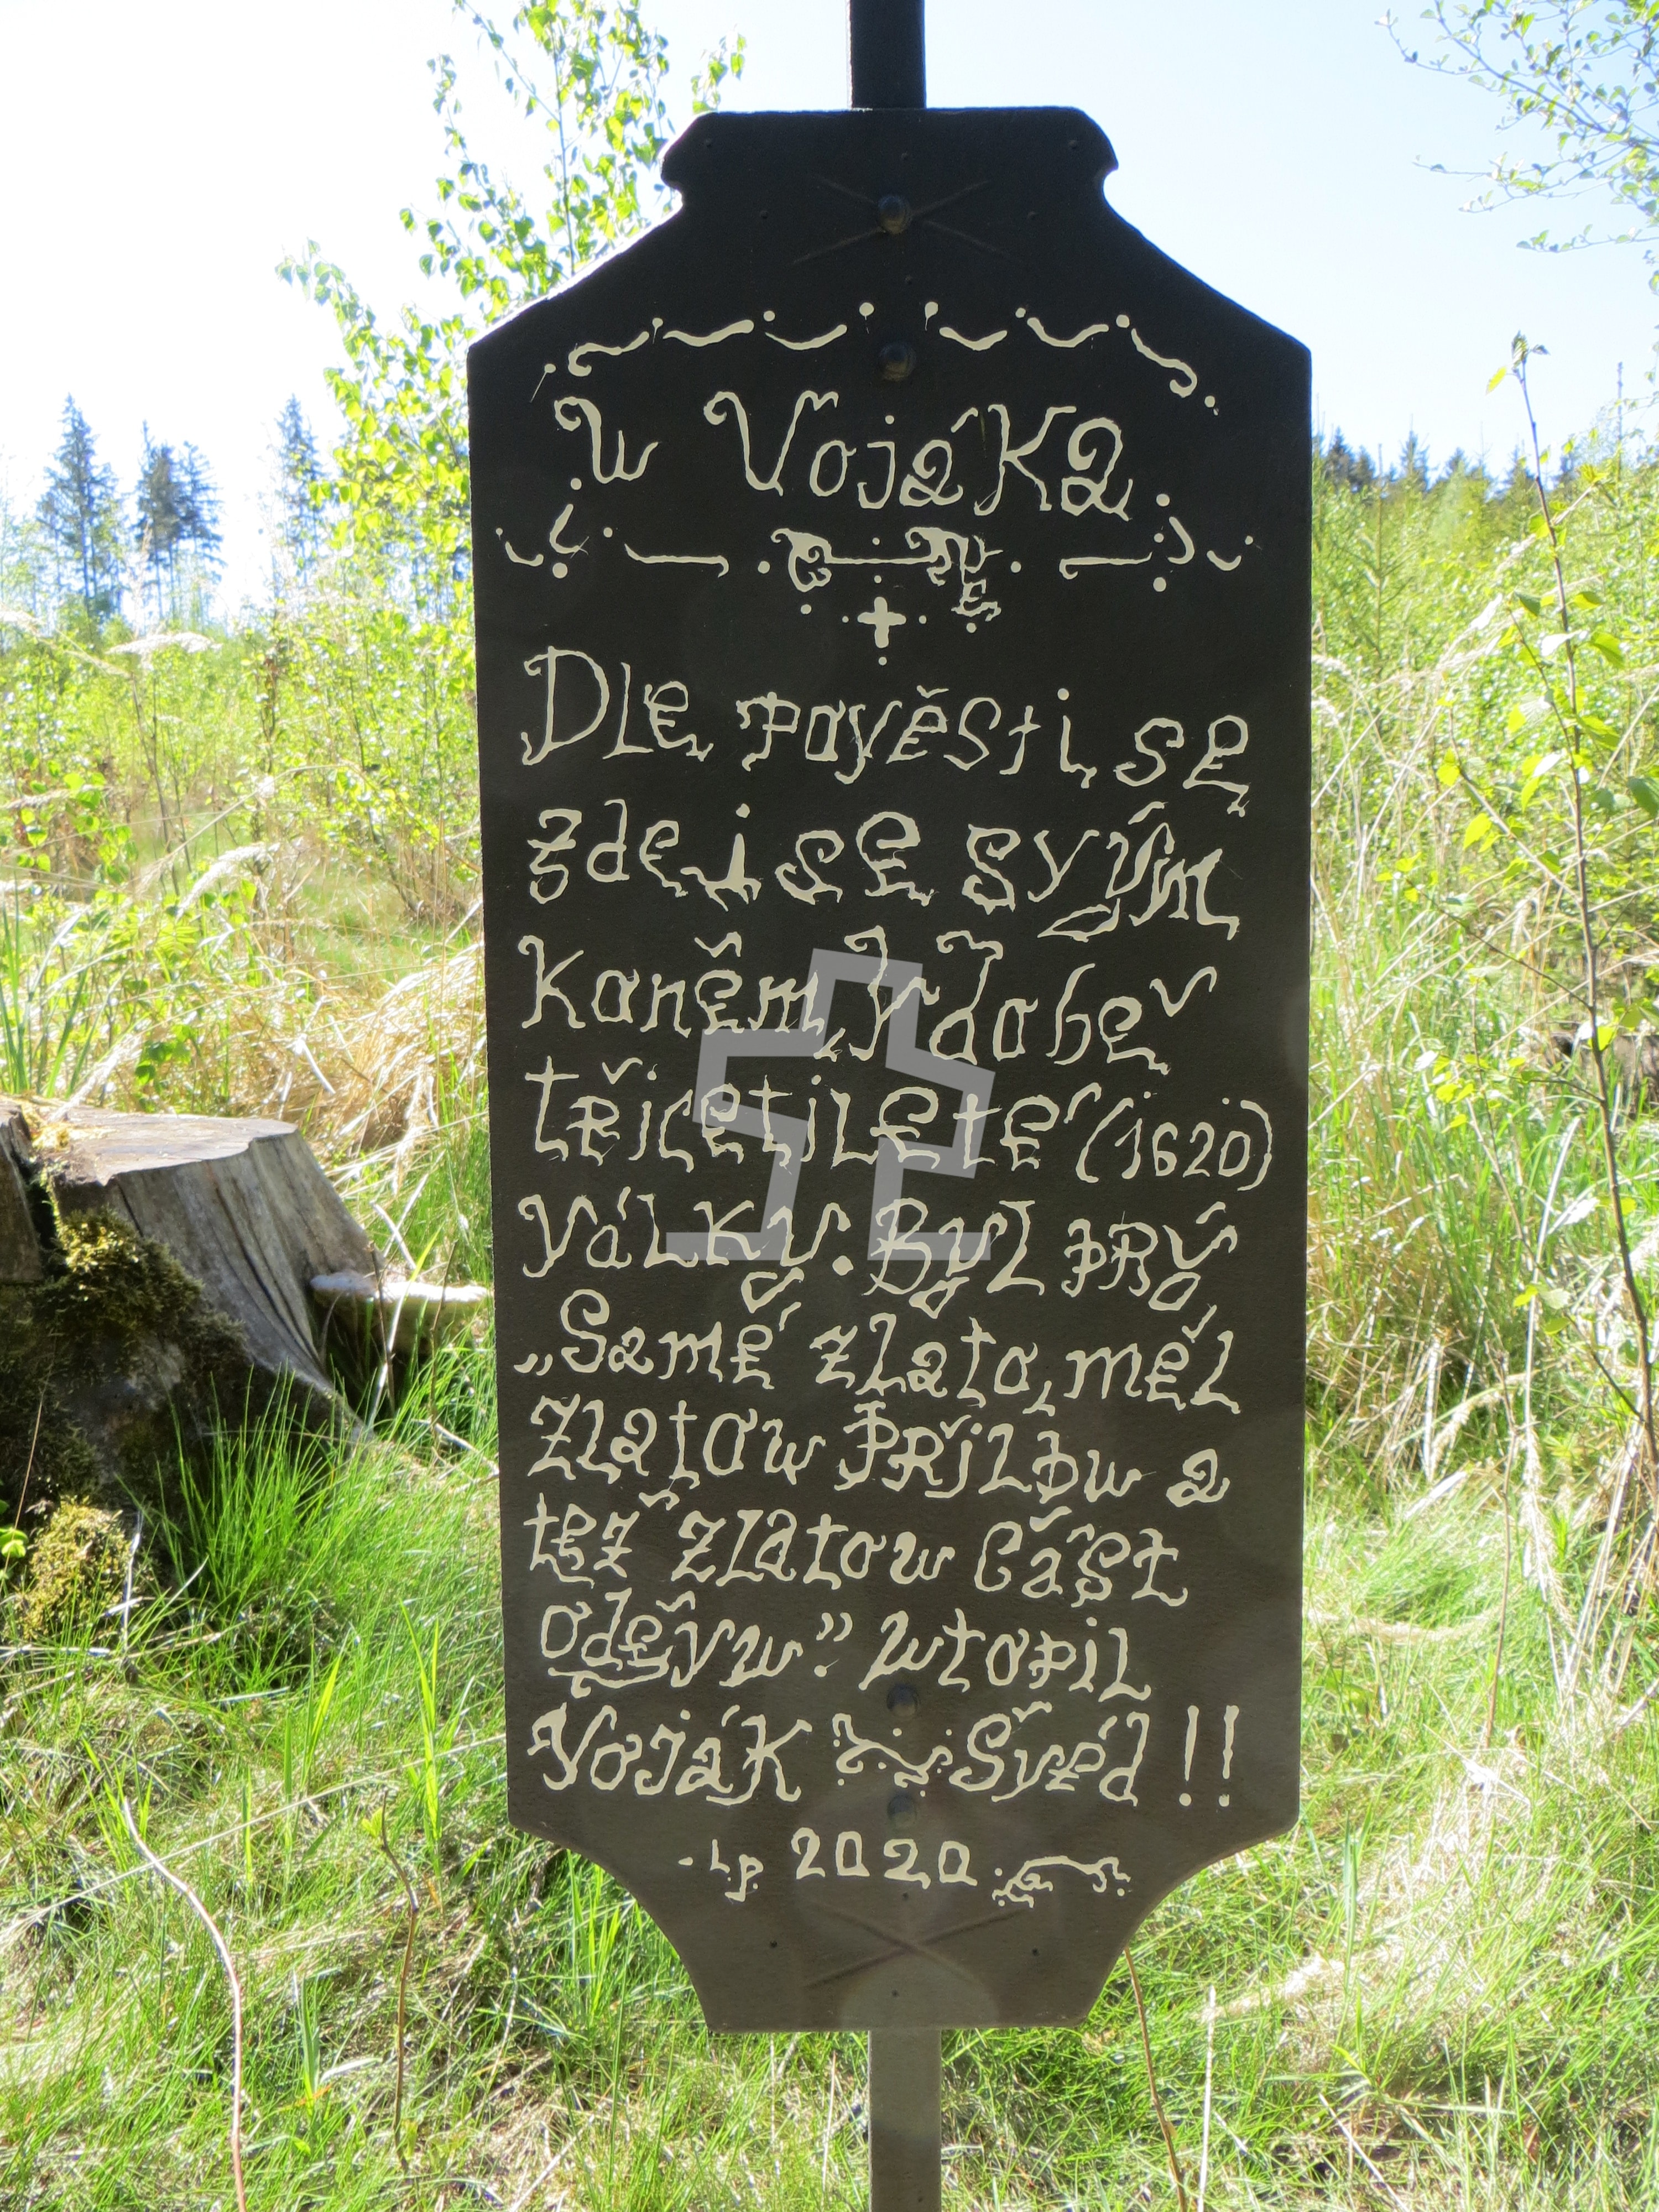 W Vojáka
Dle pověsti, se
zde i se svým
koněm, v době
třicetileté (1620)
války. Byl prý
„Samé zlato, měl
zlatow přilbw a
též zlatow část
oděvw". Wtopil
Voják Švéd!!
2020